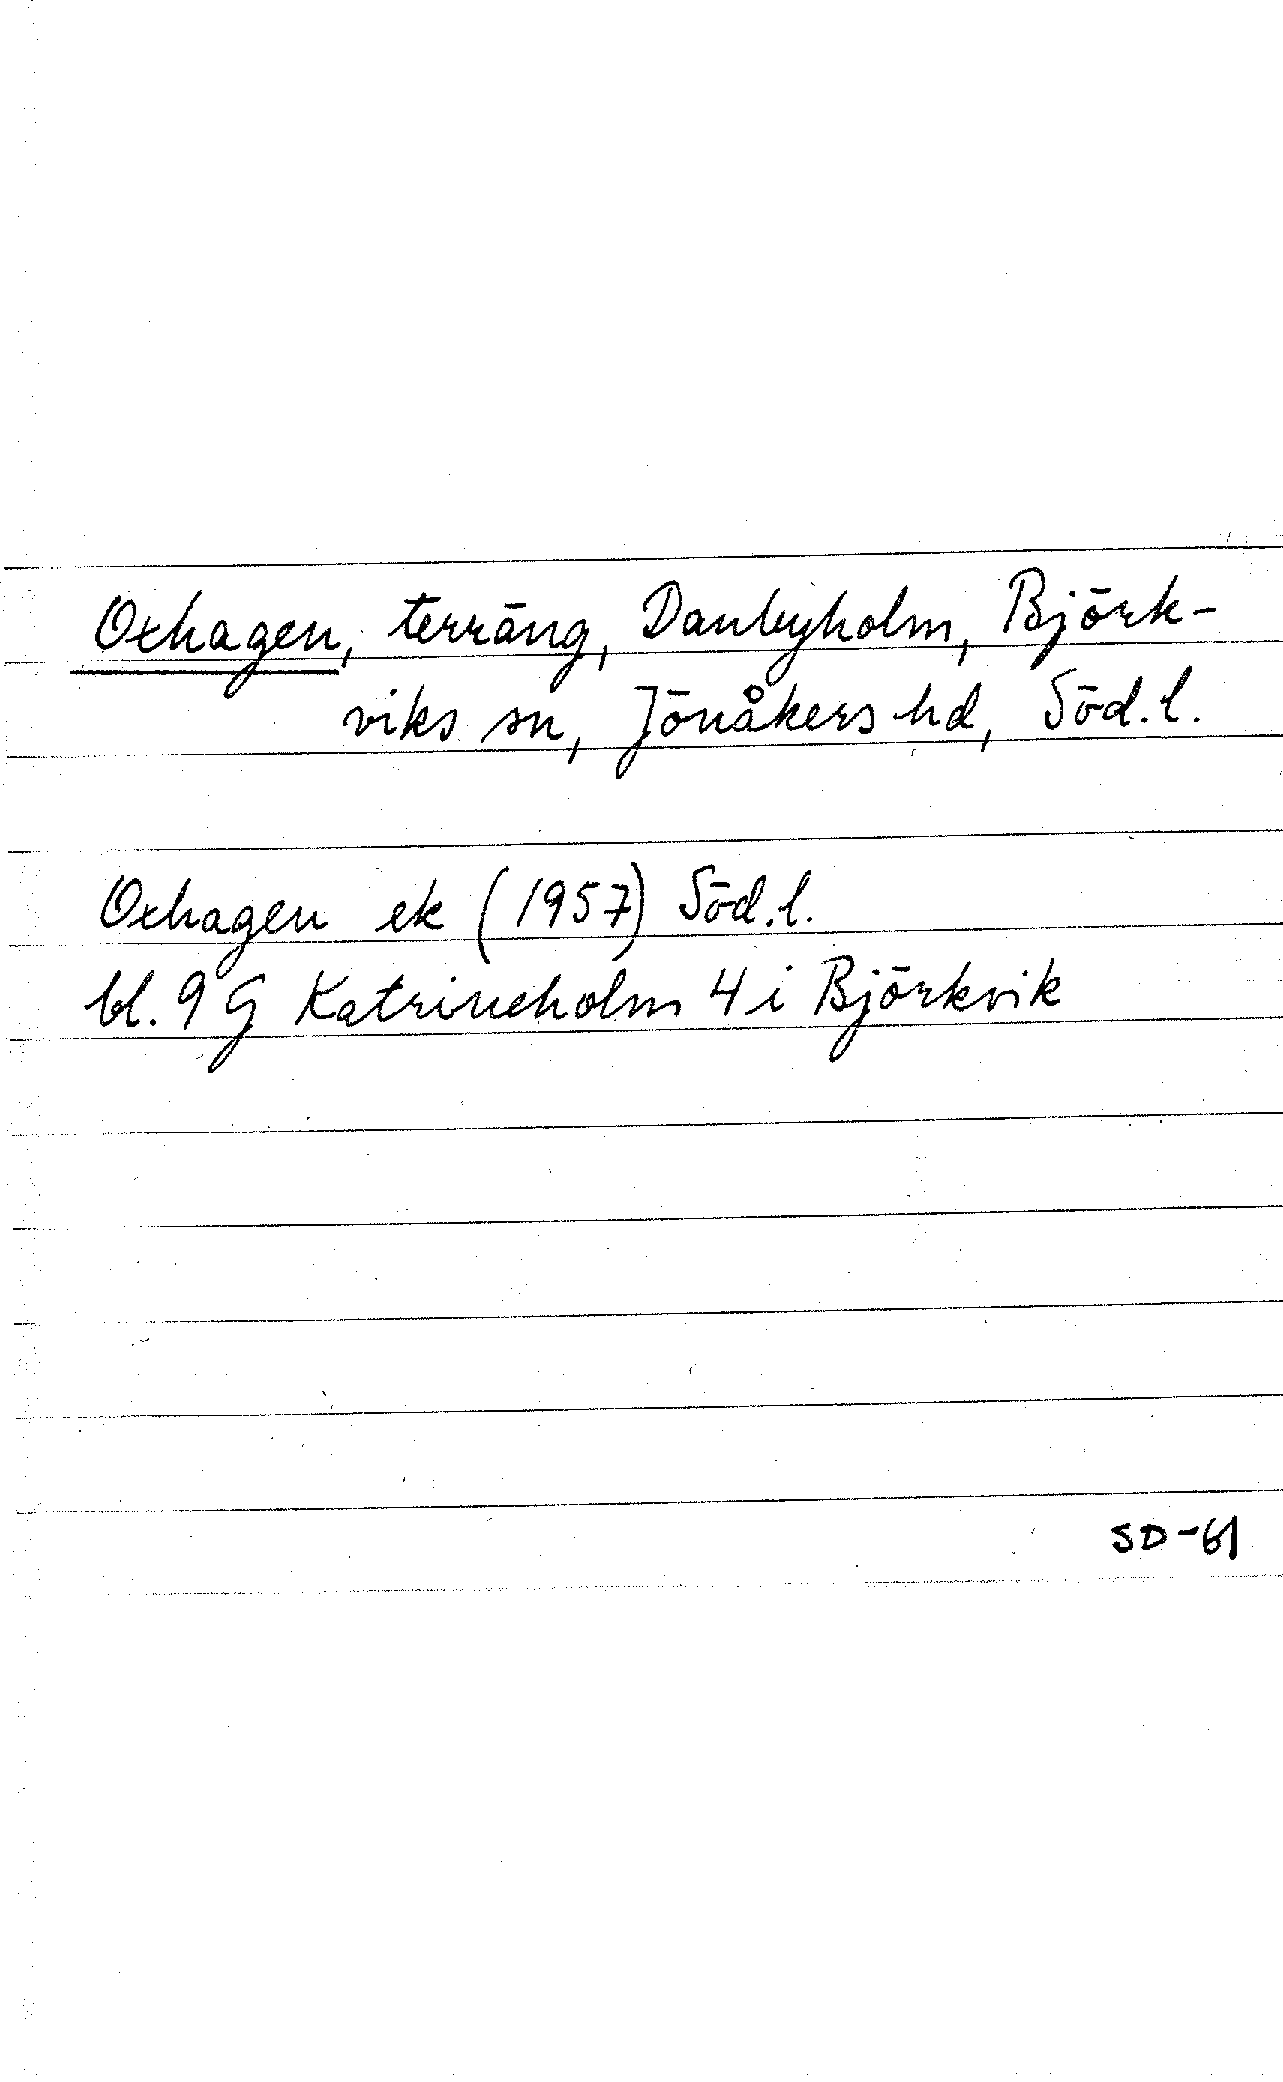 Oxhagen, terräng, Danbyholm, Björk-
viks sn, Jönåkers hd, Söd.l.
Oxhagen ek (1957) Söd.l.
bl. 9 G Katrineholm 4 i Björkvik
SD-61